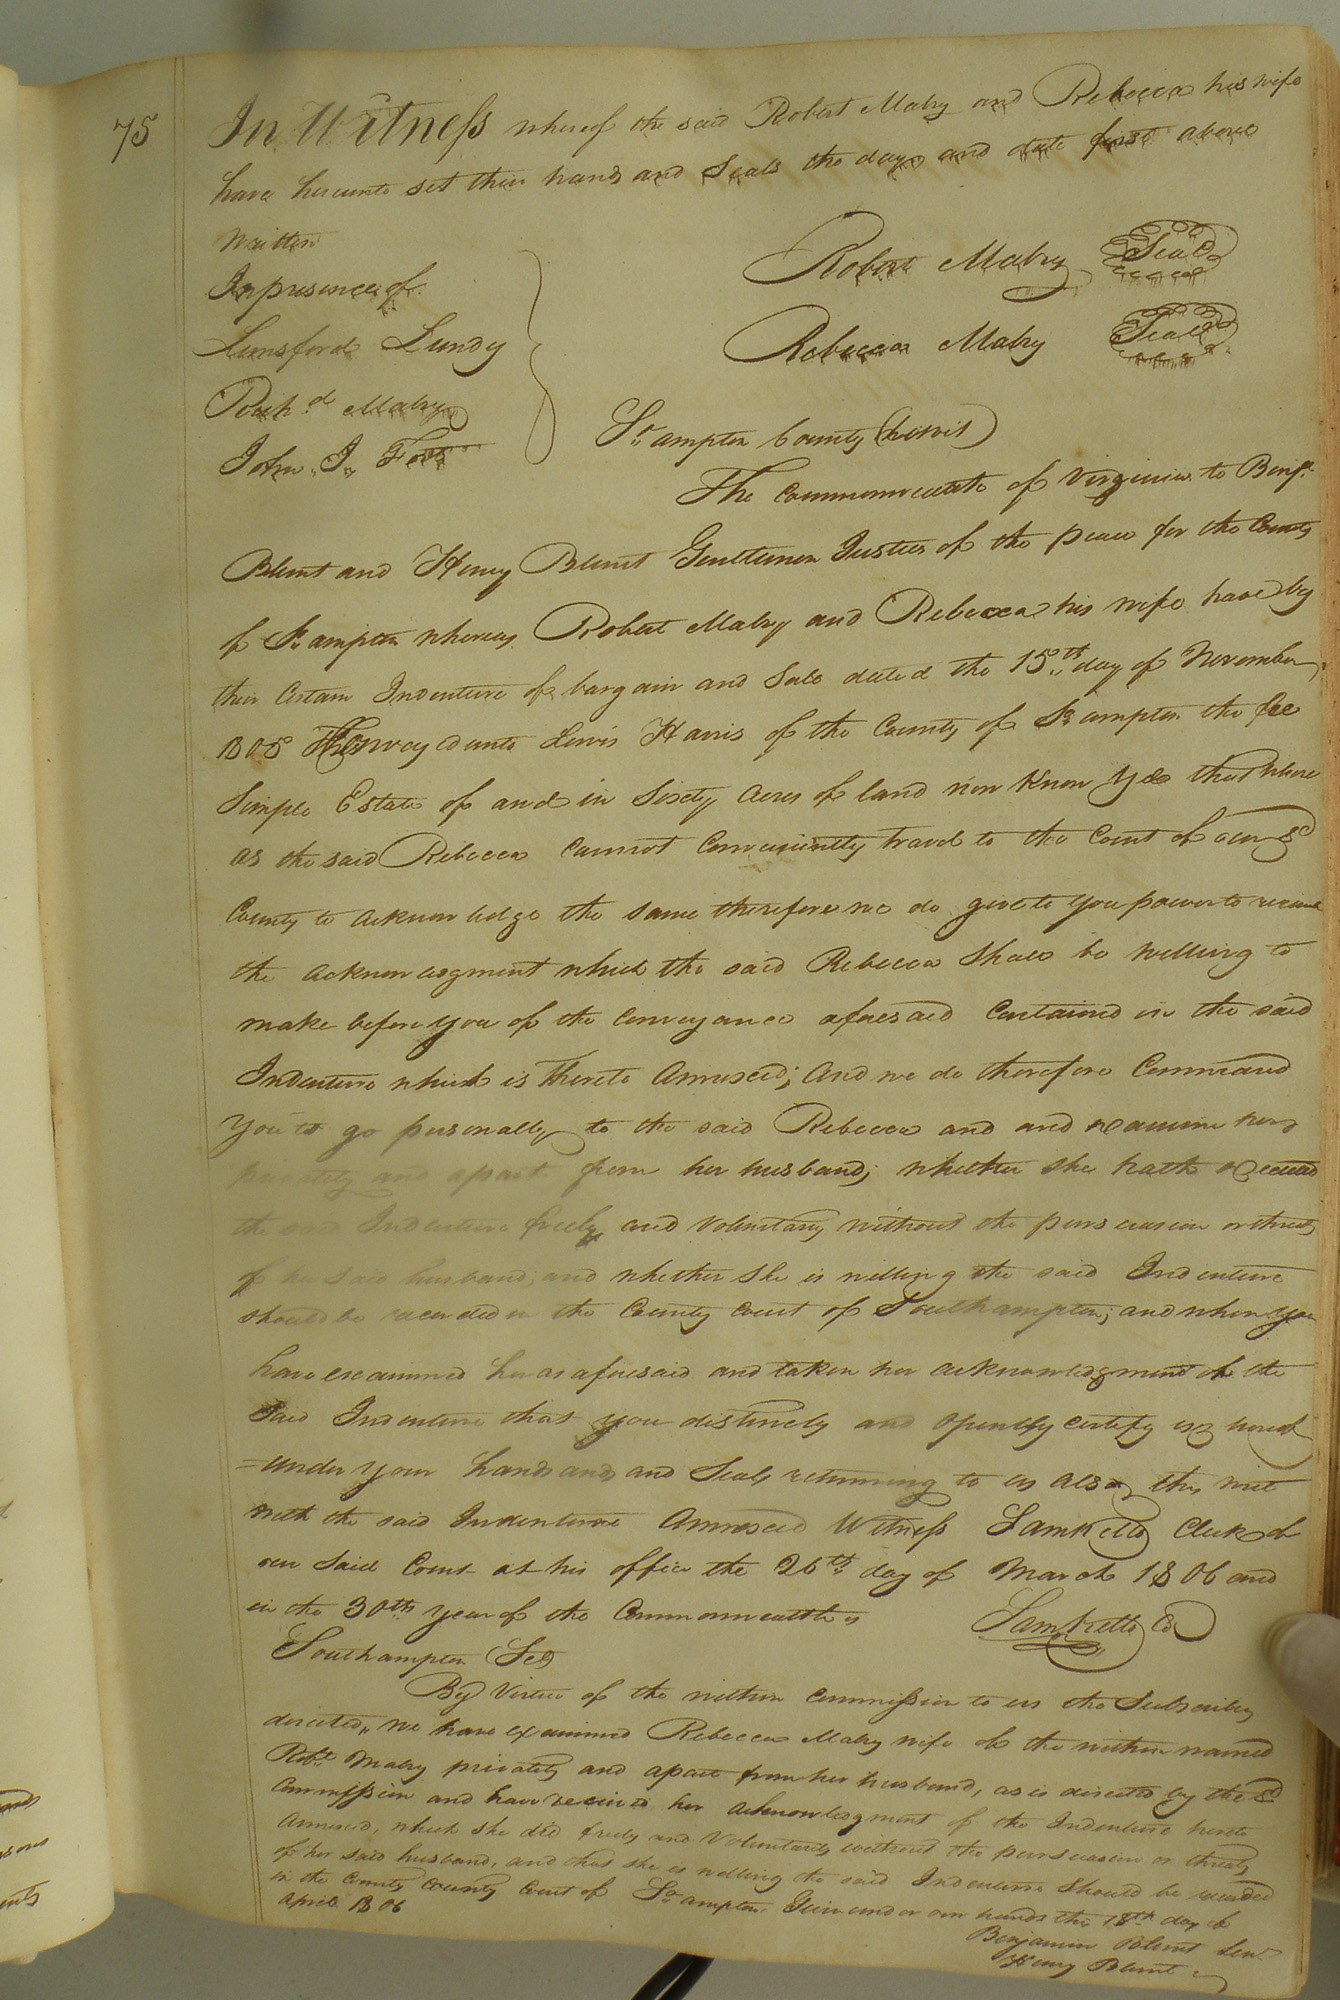 75
In Witness whereof the said Robert Mabry and Rebecca his wife
have hereunto set their hands and Seals the day and date first above
Written
In presence of
Lunsford Lundy
Rich.d Mabry
John. J. Foort
Robert Mabry Seal
Rebecca Mabry Seal
So. ampton County (towit)
The Commonwealth of Virginia to Benj.a
Blunt and Henry Blunt Gentlemen Justices of the peace for the County
of So. ampton whereas Robert Mabry and Rebecca his wife have by
their Certain Indenture of bargain and Sale dated the 15th day of November
1805 Conveyed unto Lewis Harris of the County of So. ampton the fee
Simple Estate of and in Sixty Acres of land now Know Yee that where
as the said Rebecca Cannot Conveniently travel to the Court of our sd
County to acknowledge the same therefore we do give to you power to receive
the acknowledgment which the said Rebecca Shall be willing to
make before you of the Conveyance aforesaid Contained in the said
Indenture which is thereto Annexed; And we do therefore Command
You to go personally to the said Rebecca and and examine her
privately and apart from her husband; whether she hath executed
the said Indenture freely and Voluntary without the perswasion or threats
of her said husband, and whether she is willing the said Indenture
should be recorded in the County Court of Southampton; and when you
have examined her as aforesaid and taken her acknowledgment of the
Said Indenture that you distinctly and Openly certify us hereof
=under your hands and and Seals returning to us also this writ
with the said Indenture Annexed Witness Saml Kello Clerk of
our Said Court at his office the 26th day of March 1806 and
in the 30th year of the Commonwealth
Saml Kello Cs
Southampton (Sct)
By Virtue of the within Commission to us the Subscribers
directed, we have examined Rebecca Mabry wife of the within named
Robt. Mabry privately and apart from her husband, as is directed by the sd
Commission and have received her acknowledgment of the Indenture hereto
Annexed, which she did freely and Voluntarily without the perswasion or threats
of her said husband, and that she is willing the said Indenture Should be recorded
in the County County Court of So. ampton. Given under our hands this 18th day of
April 1806
Benjamin Blunt Senr
Henry Blunt